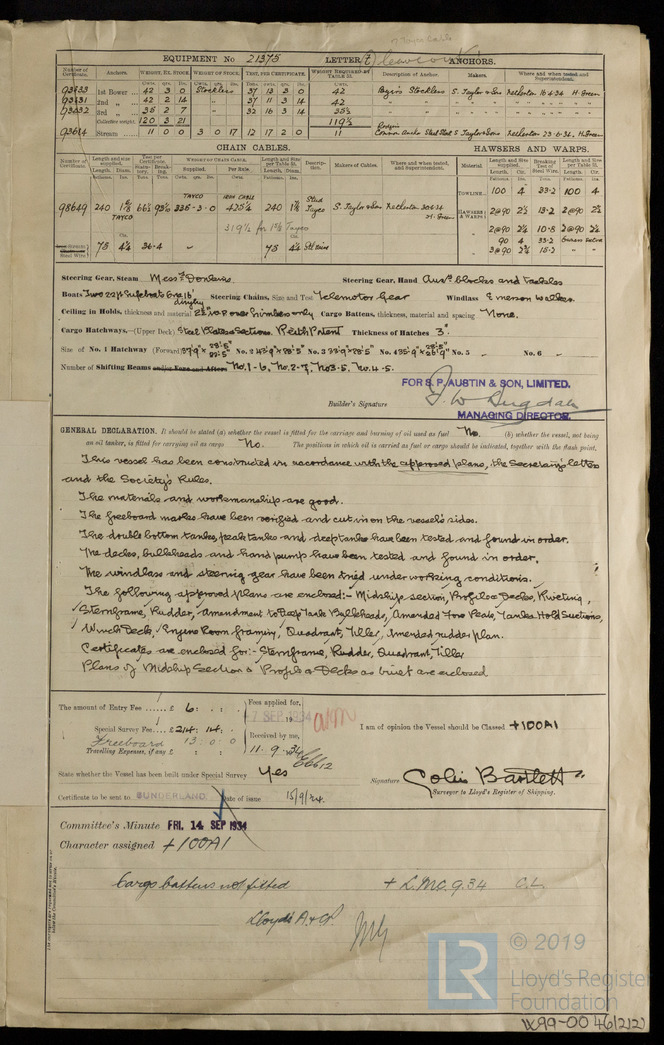 EQUIPMENT No 21375 LETTER ANCHORS.
Number of Certificate. Anchors. WEIGHT, EX. STOCK WEIGHT OF STOCK. TEST, PER CERTIFICATE. WEIGHT REQUIRED BY TABLE 31. Description of Anchor. Makers. Where and when tested and Superintendent.
93733 1st Bower 42 3 0 Stockless 37 13 3 0 42 Byers Stockless S. Taylor & Sons Netherton 16.4.34 H. Green
2nd 42 2 14 37 11 3 14 42
3rd 35 2 7 32 16 3 14 35½
Collective weight 120 3 21 119½
93614 Stream 11 0 0 3 0 17 12 17 2 0 11 S. Taylor & Sons Netherton 23.6.34. H. Green
CHAIN CABLES. HAWSERS AND WARPS.
Number of Certificate. Length and size supplied. Test per Certificate. WEIGHT OF CHAIN CABLE. Length and Size per Table 31. Description. Makers of Cables. Where and when tested, and Superintendent. Material. Length and Size supplied. Breaking Test of Steel Wire. Length and Size per Table 31.
98649 240 TAYCO 336-3-0 IRON CABLE 425¼ 240 Stud Tayco S. Taylor & Sons Netherton 30.6.34 H. Green
TOWLINE 100 4 33.2 100 4
HAWSERS & WARPS 2@90 2½ 13.2 2@90 2½
2@90 2¼ 10.8 2@90 2¼
90 4 33.2
3@90 2¾ 15.2
319½ for Tayco
75 4¼ 36.4 75 4¼ Stl wire
Steering Gear, Steam Messrs Donkins Steering Gear, Hand Aux. blocks and tackles
Boats Two 22ft Lifeboats One 16' dinghy Steering Chains, Size and Test Telemotor Gear Windlass Emerson Walker.
Ceiling in Holds, thickness and material 2½" W.P. over timbers only Cargo Battens, thickness, material and spacing None.
Cargo Hatchways.—(Upper Deck) Steel Plates & Sections. Reith Patent Thickness of Hatches 3".
Size of No. 1 Hatchway (Forward) No. 2 No. 3 33'9" x 28'5" No. 4 No. 5 „ No. 6 „
Number of Shifting Beams and/or Fore and Afters No. 1-6, No. 2-7, No 3-5, No. 4-5.
FOR S. P. AUSTIN & SON, LIMITED.
Builder's Signature
MANAGING DIRECTOR.
GENERAL DECLARATION. It should be stated (a) whether the vessel is fitted for the carriage and burning of oil used as fuel No. (b) whether the vessel, not being
an oil tanker, is fitted for carrying oil as cargo No. The positions in which oil is carried as fuel or cargo should be indicated, together with the flash point.
This vessel has been constructed in accordance with the approved plans, the Secretary's letters
and the Society's Rules.
The materials and workmanship are good.
The freeboard marks have been verified and cut in on the vessel's sides.
The double bottom tanks, peak tanks and deep tanks have been tested and found in order.
The decks, bulkheads and hand pump have been tested and found in order.
The windlass and steering gear have been tried under working conditions.
The following approved plans are enclosed:- Midship section, Profile & Decks, Riveting,
Sternframe, Rudder, Amendment to Deep Tank Bulkheads, Amended Fore Peak, Tanks Hold Suctions,
Winch Deck, Engine Room framing, Quadrant, Tiller, Amended rudder plan.
Certificates are enclosed for:- Sternframe, Rudder, Quadrant, Tiller
Plans of Midship Section & Profile & Decks as built are enclosed.
The amount of Entry Fee £ 6 : :
Special Survey Fee £ 214 : 14 :
Freeboard 13 : 0 : 0
Travelling Expenses, if any £
Fees applied for,
SEP 1934
Received by me,
11. 9. 34
I am of opinion the Vessel should be Classed +100A1
State whether the Vessel has been built under Special Survey Yes
Signature. Colin Bartlett
Surveyor to Lloyd's Register of Shipping.
Certificate to be sent to SUNDERLAND Date of issue 15/9/34.
Committee's Minute FRI. 14 SEP 1934
Character assigned +100A1
Cargo battens not fitted + LMC 9.34 C.L.
Lloyds A & CP.
© 2019
LR Lloyd's Register Foundation
W99-0046(2/2)